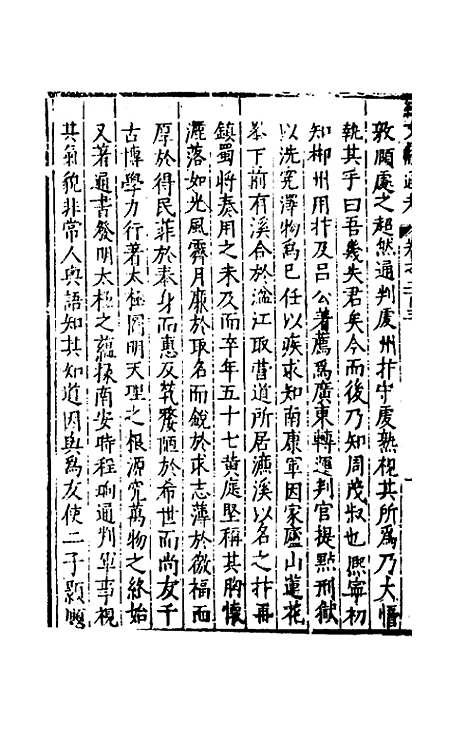 敦頤處之超然通判虔州抃守虔熟視其所為乃大悟
執其手曰吾幾失君矣今而後乃知周茂叔也熙寧初
知郴州用抃及呂公著薦為廣東轉運判官提點刑獄
以洗冤澤物為己任以疾求知南康軍因家廬山蓮花
峯下前有溪合於湓江取營道所居濂溪以名之抃再
鎮蜀將奏用之未及而卒年五十七黃庭堅稱其胸懷
灑落如光風霽月廉於取名而銳於求志薄於徼福而
厚於得民菲於奉身而惠及煢嫠陋於希世而尚友千
古博學力行著太極圖明天理之根源究萬物之終始
又著通書發明太極之蘊掾南安時程珦通判軍事視
其氣貌非常人與語知其知道因與為友使二子顥